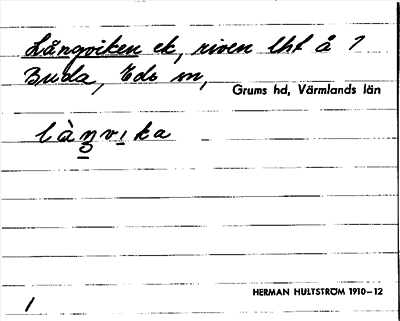 Långviken ek, riven lht å 7
Buda, Eds sn,
Grums hd, Värmlands län
làŋvika
HERMAN HULTSTRÖM 1910–12
1